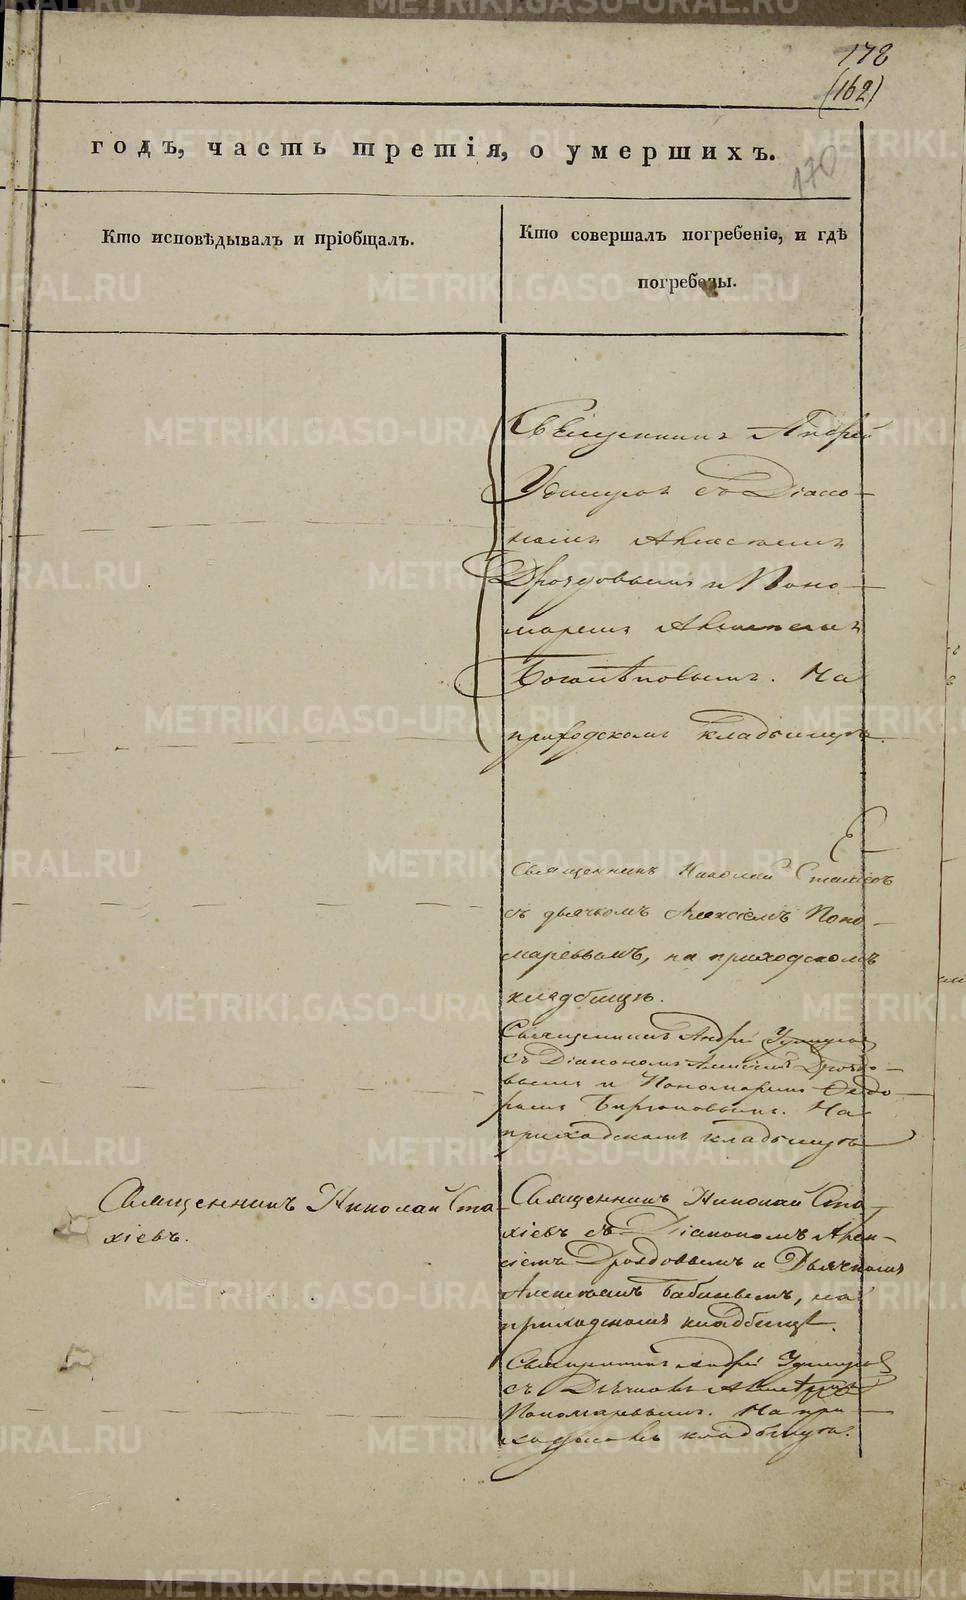 178
(162)
годъ, часть третія, о умершихъ.
170
Кто исповѣдывалъ и пріобщалъ.
Кто совершалъ погребеніе, и гдѣ
погребены.
Священникъ Андрей
Удинцовъ съ Діако-
номъ Алексѣемъ
Дроздовымъ и Поно-
маремъ Алексѣемъ
На
приходскомъ кладбищѣ
Священникъ Николай Стахіевъ
съ дьячкомъ Алексіемъ Поно-
маревымъ, на приходскомъ
кладбищѣ.
Священникъ Андрей Удинцовъ
съ Діакономъ Алексіемъ Дроздо-
вымъ и Пономаремъ Ѳедо-
ромъ Бирюковымъ. На
приходскомъ кладбищѣ
Священникъ Николай Ста
хіевъ.
Священникъ Николай Ста-
хіевъ съ Діакономъ Алек-
сіемъ Дроздовымъ и Дьячкомъ
Алексѣемъ Бабинымъ, на
приходскомъ кладбищѣ.
Священникъ Андрей Удинцовъ
съ Дьячкомъ
Пономаревымъ. На при
ходскомъ кладбищѣ.
METRIKI.GASO-URAL.RU